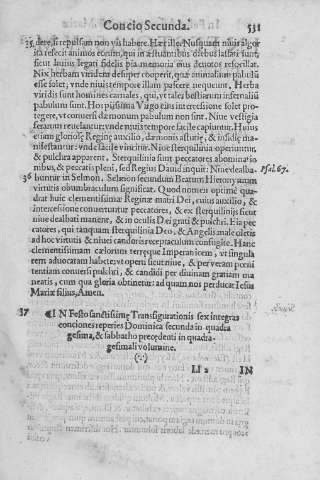 Concio Secunda. 531
35. dere, si repulsam non vis habere. Hæc ille. Nusquam niuis algor
ita refecit animos eorum, qui in æstiuantibus diebus lassari sunt,
sicut huius legati fidelis pia memoria eius deuotos refocillat.
Nix herbam viridem desuper cooperit, quæ animalium pabulū
esse solet; vnde niuis tempore illam pascere nequeunt, Herba
viridis sunt homines carnales, qui, vt tales bestiarum infernaliū
pabulum sunt. Hos piissima Virgo eius intercessione solet pro-
tegere, vt conuersi dæmonum pabulum non sint. Niue vestigia
ferarum reuelantur: vnde niuis tempore facile capiuntur. Huius
etiam gloriosę Reginę auxilio, dæmonis astutię, & insidię ma-
nifestantur: vnde facile vincitur. Niue sterquilinia operiuntur,
& pulchra apparent. Sterquilinia sunt peccatores abominatio
nibus, & peccatis pleni, sed Regius Dauid inquit: Niue dealba- Psal. 67.
36 buntur in Selmon. Selmon secundùm Beatum Hieronymum
virtutis obumbraculum significat. Quod nomen optimè qua-
drat huic clementissimæ Reginæ matri Dei, cuius auxilio, &
intercessione conuertuntur peccatores, & ex sterquilinijs sicut
niue dealbati manent, & in oculis Dei grati & pulchri. Eia pec
catores, qui tanquam sterquilinia Deo, & Angelis malè oletis
ad hoc virtutis & niuei candoris receptaculum confugite. Hanc
clementissimam cælorum terręque Imperatricem, vt singula
rem aduocatam habete; vt operi sicut niue, & per veram pœni
tentiam conuersi pulchri, & candidi per diuinam gratiam ma
neatis, cum qua gloria obtinetur: ad quam nos perducat Iesus
Mariæ filius, Amen.
37 ¶ IN Festo sanctissimę Transfigurationis sex integras
conciones reperies Dominica secunda in quadra
gesima, & sabbatho precędenti in quadra-
gesimali volumine.
(∵)
Ll 2 IN